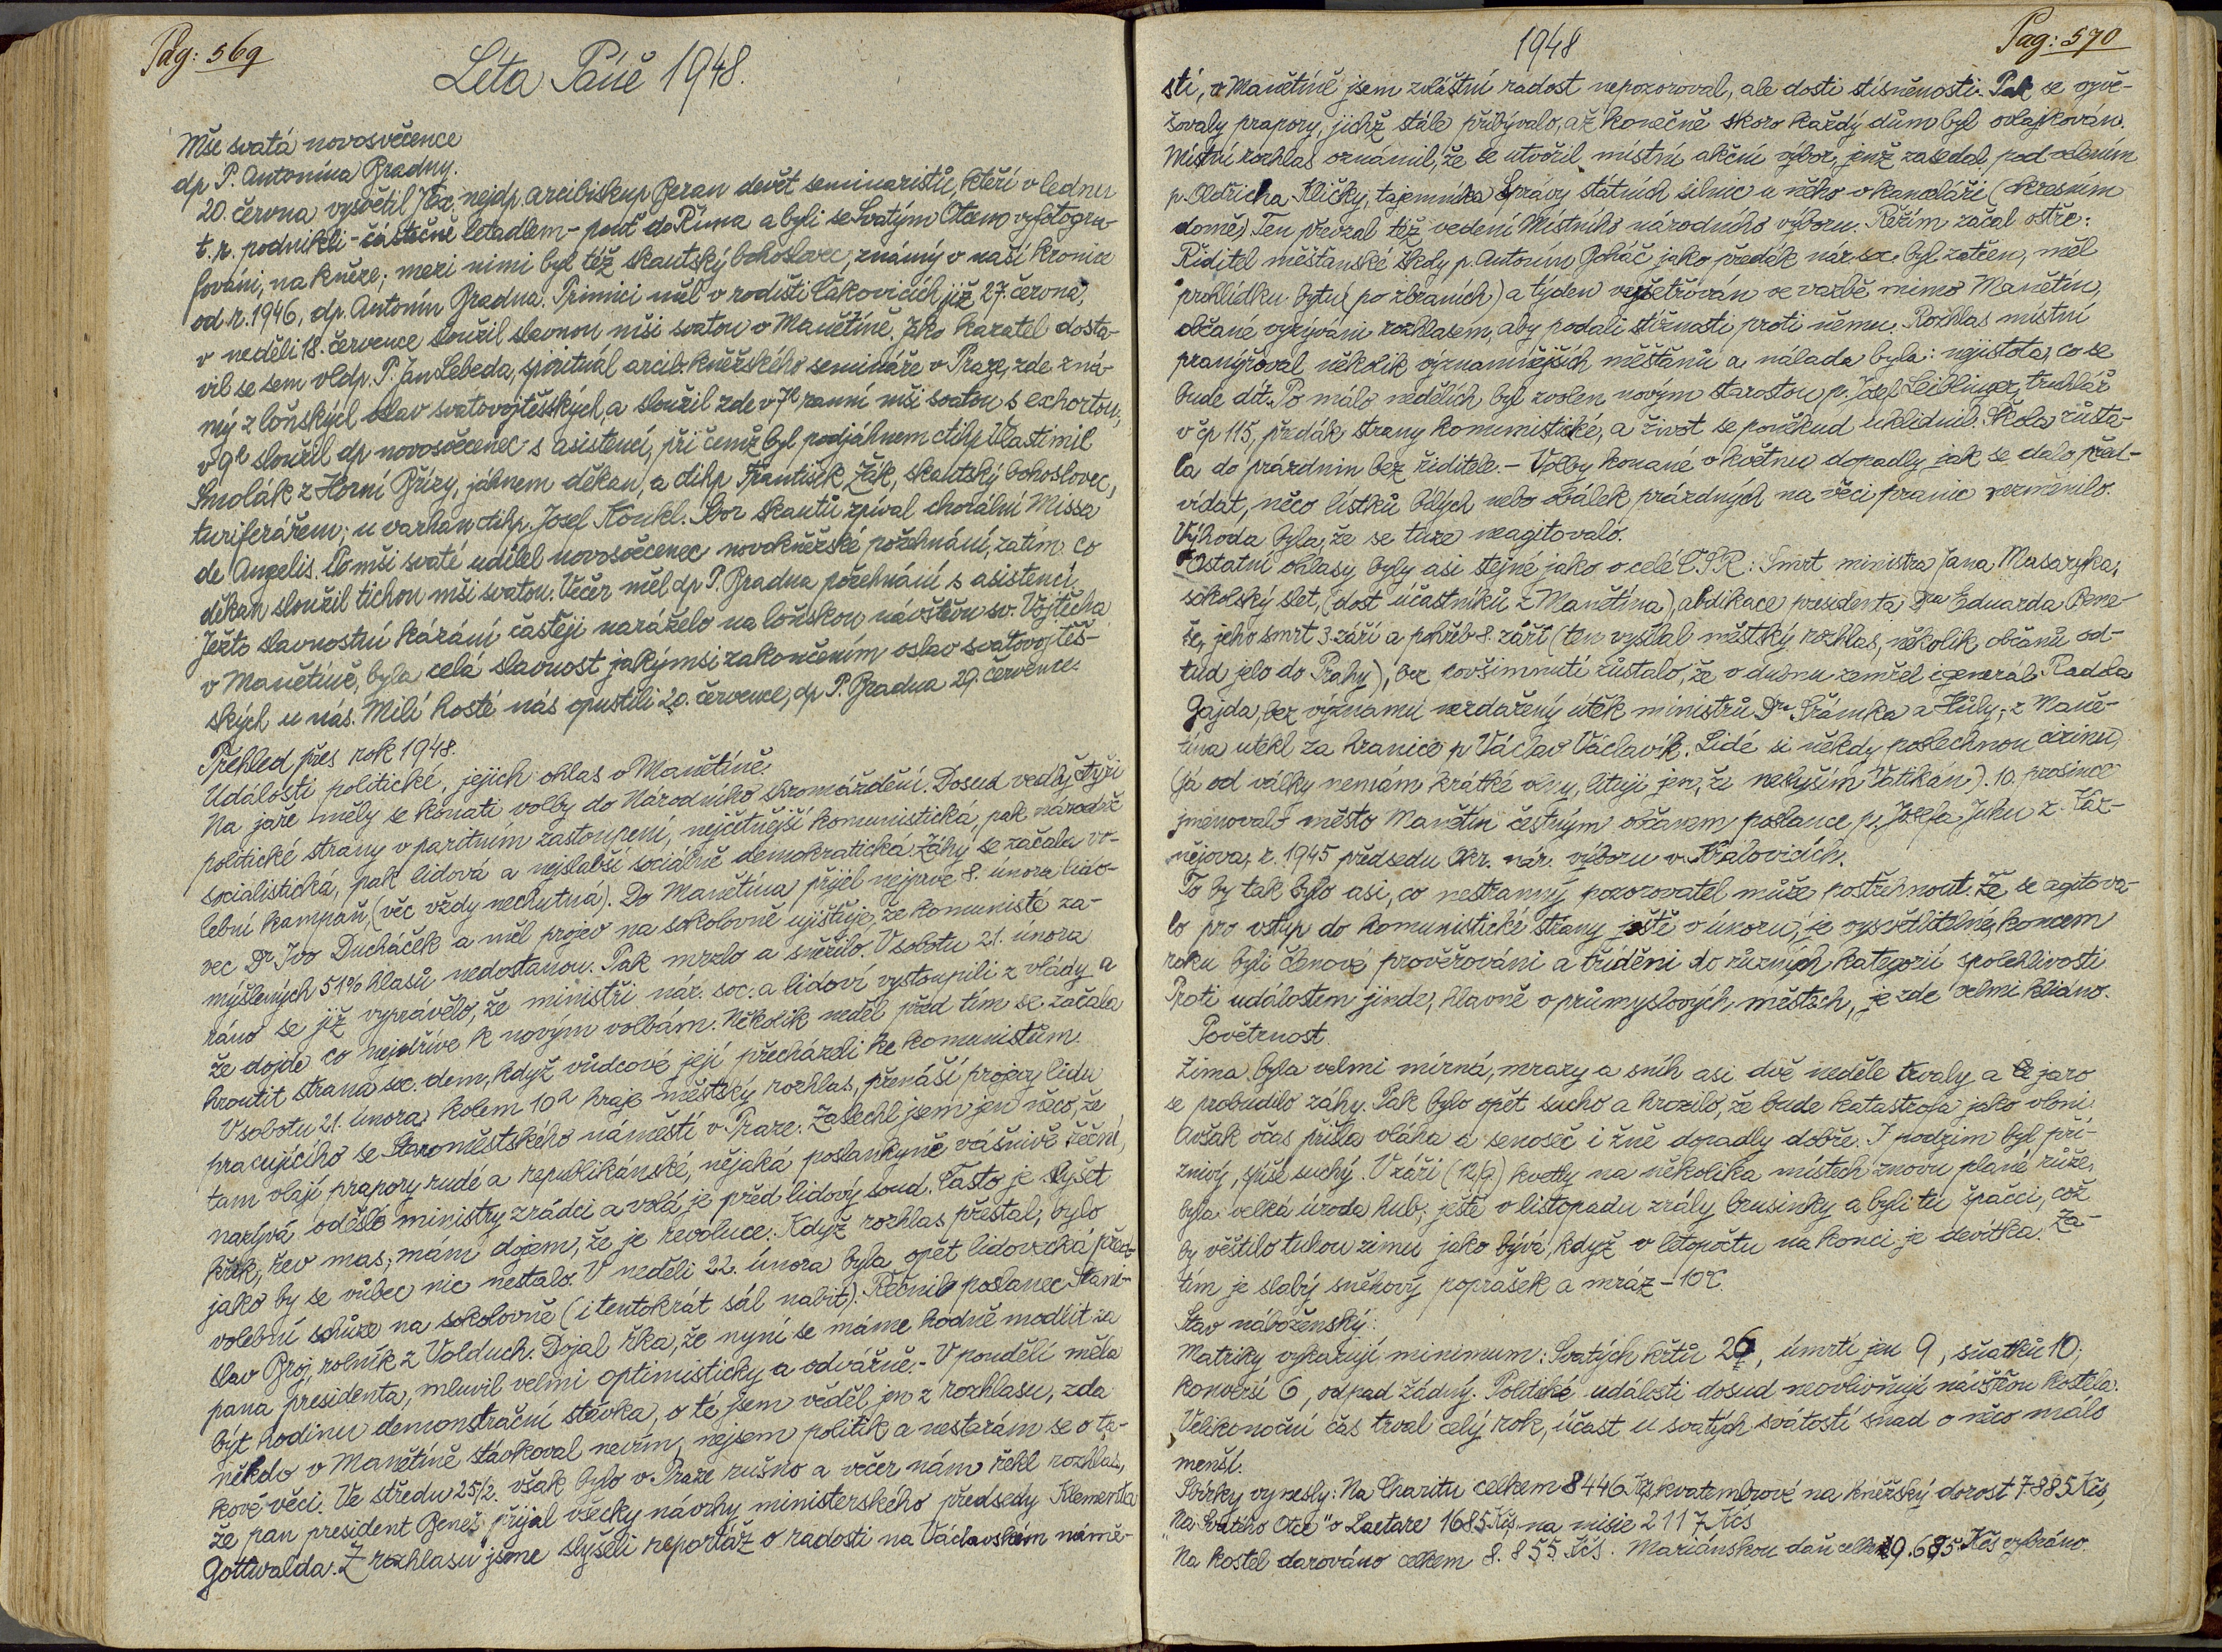 Pag: 569
Léta Páně 1948.
Mše svatá novosvěcence
dp P. Antonína Bradny.
20. června vysvětil J. Ex. nejdp. arcibiskup Beran devět seminaristů, kteří v lednu
t. r. podnikli - částečně letadlem - pouť do Říma a byli se Svatým Otcem vyfotogra-
fováni, na kněze; mezi nimi byl též skautský bohoslovec, známý v naší kronice
od r. 1946, dp. Antonín Bradna. Primici měl v rodišti Čakovicích již 27. června,
v neděli 18. července sloužil slavnou mši svatou v Manětíně. Jako kazatel dosta-
vil se sem vldp. P. Jan Lebeda, spirituál arcib. kněžského semináře v Praze, zde zná-
mý z loňských oslav svatovojtěšských, a sloužil zde v 7h ranní mši svatou s exhortou,
v 9h sloužil dp novosvěcenec s asistencí, při čemž byl podjáhnem ctihp. Vlastimil
Smolák z Horní Břízy, jáhnem děkan, a ctihp František Žák, skautský bohoslovec,
turiferářem; u varhan ctihp. Josef Koukl. Sbor skautů zpíval chorální Missa
de Angelis. Po mši svaté udílel novosvěcenec novokněžské požehnání, zatím co
děkan sloužil tichou mši svatou. Večer měl dp P. Bradna požehnání s asistencí.
Ježto slavnostní kázání častěji naráželo na loňskou návštěvu sv. Vojtěcha
v Manětíně, byla celá slavnost jakýmsi zakončením oslav svatovojtěš-
ských u nás. Milí hosté nás opustili 20. července, dp P. Bradna 29. července.
Přehled přes rok 1948.
Události politické, jejich ohlas v Manětíně.
Na jaře měly se konati volby do Národního shromáždění. Dosud vedly čtyři
politické strany v paritním zastoupení, nejčetnější komunistická, pak národně
socialistická, pak lidová a nejslabší sociálně demokratická. Záhy se začala vo-
lební kampaň, (věc vždy nechutná). Do Manětína přijel nejprve 8. února lido-
vec Dr Ivo Ducháček a měl projev na sokolovně ujišťuje, že komunisté za-
myšlených 51% hlasů nedostanou. Pak mrzlo a sněžilo. V sobotu 21. února
ráno se již vyprávělo, že ministři nár. soc. a lidoví vystoupili z vlády a
že dojde co nejdříve k novým volbám. Několik neděl před tím se začala
hroutit strana soc. dem, když vůdcové její přecházeli ke komunistům.
V sobotu 21. února kolem 10h hraje městský rozhlas, přenáší projevy lidu
pracujícího se Staroměstského náměstí v Praze. Zaslechl jsem jen něco, že
tam vlají prapory rudé a republikánské, nějaká poslankyně vášnivě řeční,
nazývá odešlé ministry zrádci a volá je před lidový soud. Často je slyšet
křik, řev mas; mám dojem, že je revoluce. Když rozhlas přestal, bylo
jako by se vůbec nic nestalo. V neděli 22. února byla opět lidovecká před-
volební schůze na sokolovně (i tentokrát sál nabit). Řečnil poslanec Stani-
slav Broj, rolník z Volduch. Dojal řka, že nyní se máme hodně modlit za
pana presidenta, mluvil velmi optimisticky a odvážně. - V pondělí měla
být hodinu demonstrační stávka, o té jsem věděl jen z rozhlasu, zda
někdo v Manětíně stávkoval nevím, nejsem politik a nestarám se o ta-
kové věci. Ve středu 25/2. však bylo v Praze rušno a večer nám řekl rozhlas,
že pan president Beneš přijal všecky návrhy ministerského předsedy Klementa
Gottwalda. Z rozhlasu jsme slyšeli reportáž o radosti na Václavském námě-
1948
Pag: 570
stí, v Manětíně jsem zvláštní radost nepozoroval, ale dosti stísněnosti. Pak se vyvě-
šovaly prapory, jichž stále přibývalo, až konečně skoro každý dům byl ovlajkován.
Místní rozhlas oznámil, že se utvořil místní akční výbor, jenž zasedal pod vedením
p. Oldřicha Kličky, tajemníka Správy státních silnic u něho v kanceláři (okresním
domě). Ten převzal též vedení Místního národního výboru. Režim začal ostře:
Ředitel měšťanské školy p. Antonín Boháč jako předák nár. soc. byl zatčen, měl
prohlídku bytu (po zbraních) a týden vyšetřován ve vazbě mimo Manětín,
občané vyzýváni rozhlasem, aby podali stížnosti proti němu. Rozhlas místní
pranýřoval několik významnějších měšťanů a nálada byla: nejistota, co se
bude dít. Po málo nedělích byl zvolen novým starostou p. Josef Leiblinger, truhlář
v čp 115, předák strany komunistické, a život se poněkud uklidnil. Škola zůsta-
la do prázdnin bez ředitele. - Volby konané v květnu dopadly jak se dalo před-
vídat, něco lístků bílých nebo obálek prázdných na věci pranic nezměnilo.
Výhoda byla, že se tuze neagitovalo.
Ostatní ohlasy byly asi stejné jako v celé ČSR: Smrt ministra Jana Masaryka,
sokolský slet, (dost účastníků z Manětína), abdikace presidenta Dra Eduarda Bene-
še, jeho smrt 3. září a pohřeb 8. září (ten vysílal městský rozhlas, několik občanů od-
tud jelo do Prahy), bez povšimnutí zůstalo, že v dubnu zemřel i generál Radola
Gajda, bez významu nezdařený útěk ministrů Dra Šrámka a Hály, z Maně-
tína utekl za hranice p Václav Václavík. Lidé si někdy poslechnou cizinu,
(já od války nemám krátké vlny, lituji jen, že neslyším Vatikán). 10. prosince
jmenovalo město Manětín čestným občanem poslance p. Josefa Juhu z Kaz-
nějova, r. 1945 předsedu Okr. nár. výboru v Kralovicích.
To by tak bylo asi, co nestranný pozorovatel může postřehnout. Že se agitova-
lo pro vstup do komunistické strany ještě v únoru, je vysvětlitelné, koncem
roku byli členové prověřováni a tříděni do různých kategorií spolehlivosti.
Proti událostem jinde, hlavně v průmyslových městech, je zde velmi klidno.
Povětrnost.
Zima byla velmi mírná, mrazy a sníh asi dvě neděle trvaly a jaro
se probudilo záhy. Pak bylo opět sucho a hrozilo, že bude katastrofa jako vloni.
Avšak včas přišla vláha a senoseč i žně dopadly dobře. I podzim byl pří-
znivý, spíše suchý. V září (12/9) kvetly na několika místech znovu plané růže,
byla velká úroda hub; ještě v listopadu zrály brusinky a byli tu špačci, což
by věštilo tuhou zimu jako bývá, když v letopočtu na konci je devítka. Za-
tím je slabý sněhový poprašek a mráz - 10°C.
Stav náboženský:
Matriky vykazují minimum: Svatých křtů 26, úmrtí jen 9, sňatků 10,
konverší 6, odpad žádný. Politické události dosud neovlivňují návštěvu kostela.
Velikonoční čas trval celý rok, účast u svatých svátostí snad o něco málo
menší.
Sbírky vynesly: Na Charitu celkem 8446 Kčs, kvatembrové na kněžský dorost 7885 Kčs,
"Na Svatého Otce" o Laetare 1685 Kčs, na misie 2117 Kčs
Na kostel darováno celkem 8.855 Kčs. Mariánskou daň celkem 9.685 Kčs vybráno.